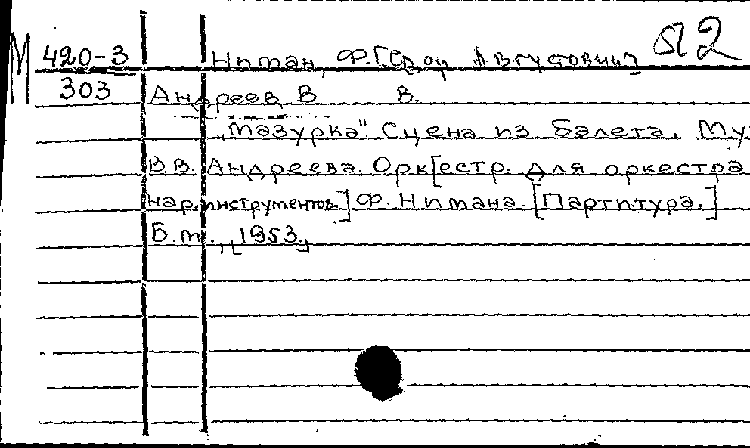 Я2
М 420-3 Ниман, Ф[едор Августович]
303 Андреев В В.
„Мазурка" Сцена из балета. Муз
В.В. Андреева. Орк[естр. для оркестра
нар. инструментов] Ф. Нимана [Партитура.]
Б.м., [1953.]